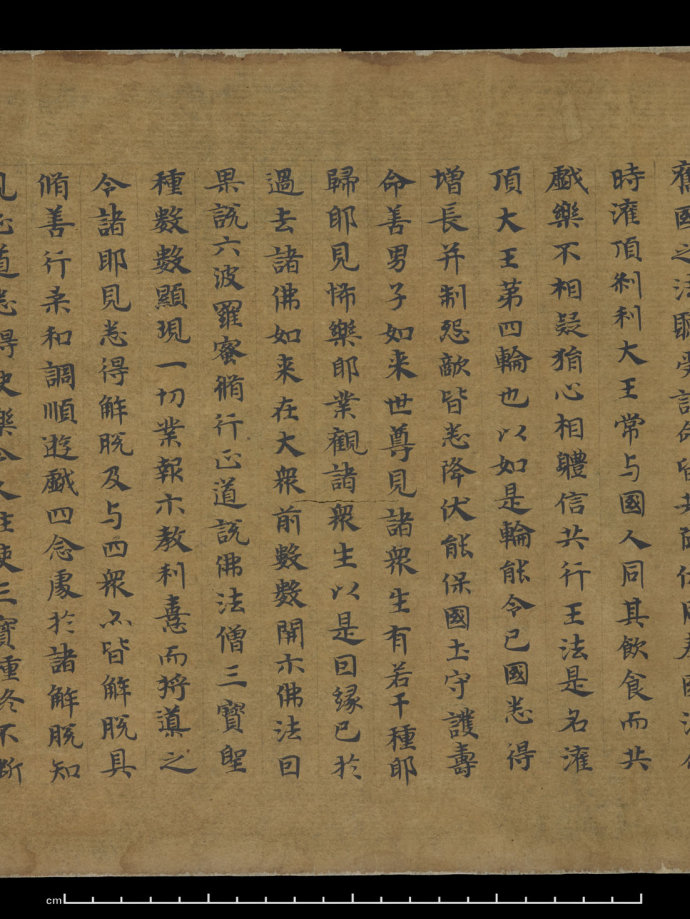 舊國之法聽受語命皆共
時灌頂刹利大王常与國人同其飲食而共
戲樂不相疑猜心相體信共行王法是名灌
頂大王第四輪也以如是輪能令已國悉得
增長并制怨敵皆悉降伏能保國土守護壽
命善男子如来世尊見諸衆生有若干種耶
歸耶見怖樂耶業觀諸衆生以是因緣已於
過去諸佛如来在大衆前數數開示佛法因
果說六波羅蜜脩行正道說佛法僧三寶聖
種數數顯現一切業報示教利憙而將導之
令諸耶見悉得解脫及与四衆亦皆解脫具
脩善行柔和調順遊戲四念處於諸解脫知
見正道悉得安樂令久住使三寶種終不斷